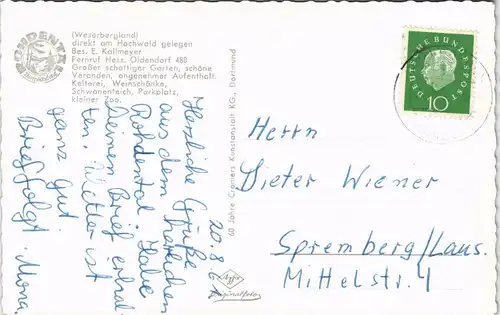 ROHDENTAL
(Weserbergland)
direkt am Hochwald gelegen
Bes. E. Kallmeyer
Fernruf Hess. Oldendorf 480
Großer schattiger Garten, schöne
Veranden, angenehmer Aufenthalt.
Kelterei, Weinschänke,
Schwanenteich, Parkplatz,
kleiner Zoo.
20.8.
Herzliche Grüße
aus dem herrlichen
Rohdental. Habe
Deinen Brief erhal-
ten. Wetter ist
ganz gut.
Brief folgt. Mona.
60 Jahre Cramers Kunstanstalt KG., Dortmund
Agfa
Originalfoto
DEUTSCHE BUNDESPOST
10
Herrn
Dieter Wiener
Spremberg/Laus.
Mittelstr. 4